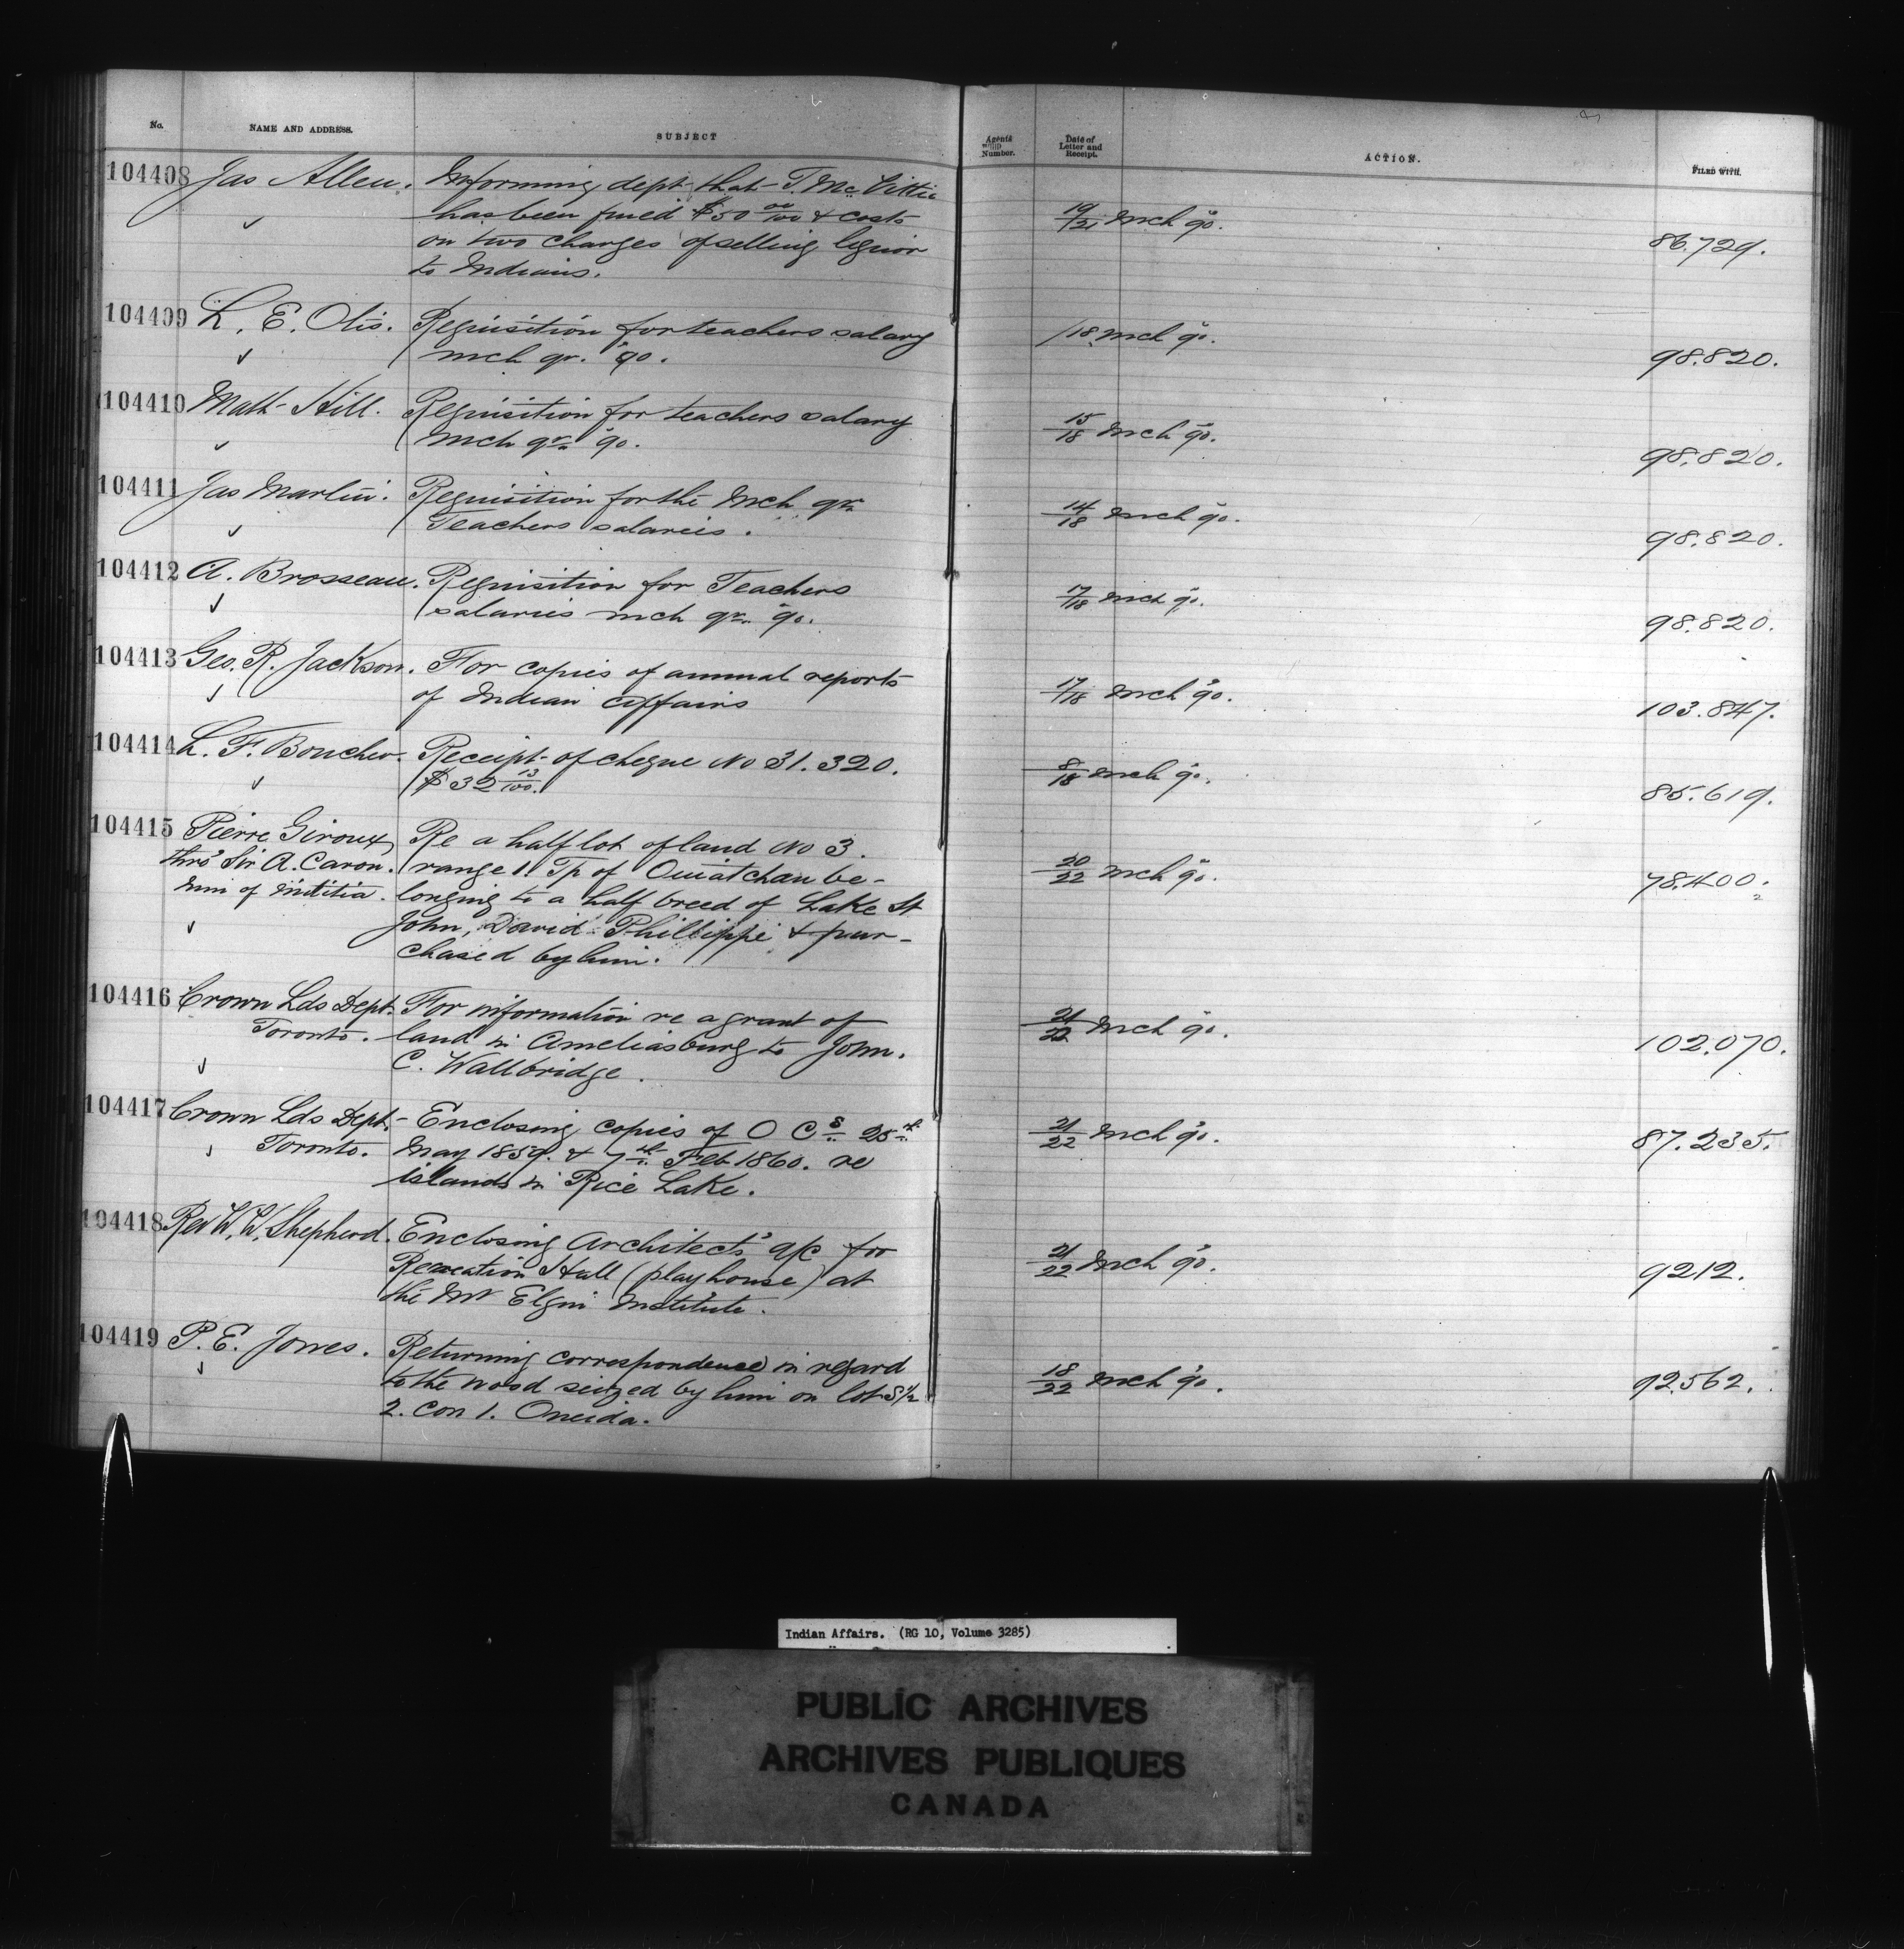 No. NAME AND ADDRESS. SUBJECT Agents Number. Date of Letter and Receipt. ACTION. FILED WITH.
104408 Jas Allen. Informing dept that T. McVittie
has been fined $50 00/100 & costs 19/21 Mch '90.
on two charges of selling liquor 86.729.
to Indians.
104409 L. E. Otis. Requisition for teachers salary /18 Mch '90.
Mch qr. '90. 98.820.
104410 Matt Hill. Requisition for teachers salary 15/18 Mch '90.
Mch qr. '90. 98.820.
104411 Jas Martin. Requisition for the Mch qr. 14/18 Mch '90.
Teachers salaries. 98.820.
104412 A. Brosseau. Requisition for Teachers 17/18 Mch '90.
salaries Mch qr. '90. 98.820.
104413 Geo. R. Jackson. For copies of annual reports 17/18 Mch '90.
of Indian Affairs 103.847.
104414 L. F. Boucher. Receipt of cheque No 31.320. 8/18 Mch '90.
$32 13/100. 85.619.
104415 Pierre Giroux Re a half lot of land No 3.
thro' Sir A. Caron. range 1. Tp of Ouiatchan be- 20/22 Mch '90.
Min of Militia. longing to a half breed of Lake St 78.400.
2
John, David Phillippe & pur-
chased by him.
104416 Crown Lds Dept. For information re a grant of
Toronto. land in Ameliasburg to John. 21/22 Mch '90.
C. Wallbridge. 102.070.
104417 Crown Lds Dept. Enclosing copies of O Cs 25th
Toronto. May 1859. & 7th Feb 1860. re 21/22 Mch '90. 87.235.
islands in Rice Lake.
104418 Rev W. W. Shepherd. Enclosing Architects' a/c for
Recreation Hall (playhouse) at 21/22 Mch '90. 9212.
the Mt Elgin Institute.
104419 P. E. Jones. Returning correspondence in regard
to the wood seized by him on lot S 1/2 18/22 Mch '90. 92.562.
2. Con 1. Oneida.
Indian Affairs. (RG 10, Volume 3285)
PUBLIC ARCHIVES
ARCHIVES PUBLIQUES
CANADA